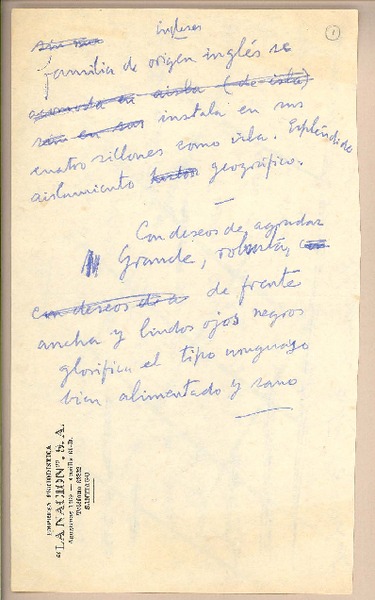 ingleses
1
familia de origen inglés se
acomoda en aisla (de isla)
instala en sus
cuatro sillones como isla. Espléndido
aislamiento geográfico.
Con deseos de agradar
Grande, robusta,
con deseos de a de frente
ancha y lindos ojos negros
glorifica el tipo uruguayo
bien alimentado y sano
EMPRESA PERIODISTICA
"LA NACION". S. A.
Agustinas 1269 — Casilla 81-D.
Teléfono 82222
SANTIAGO